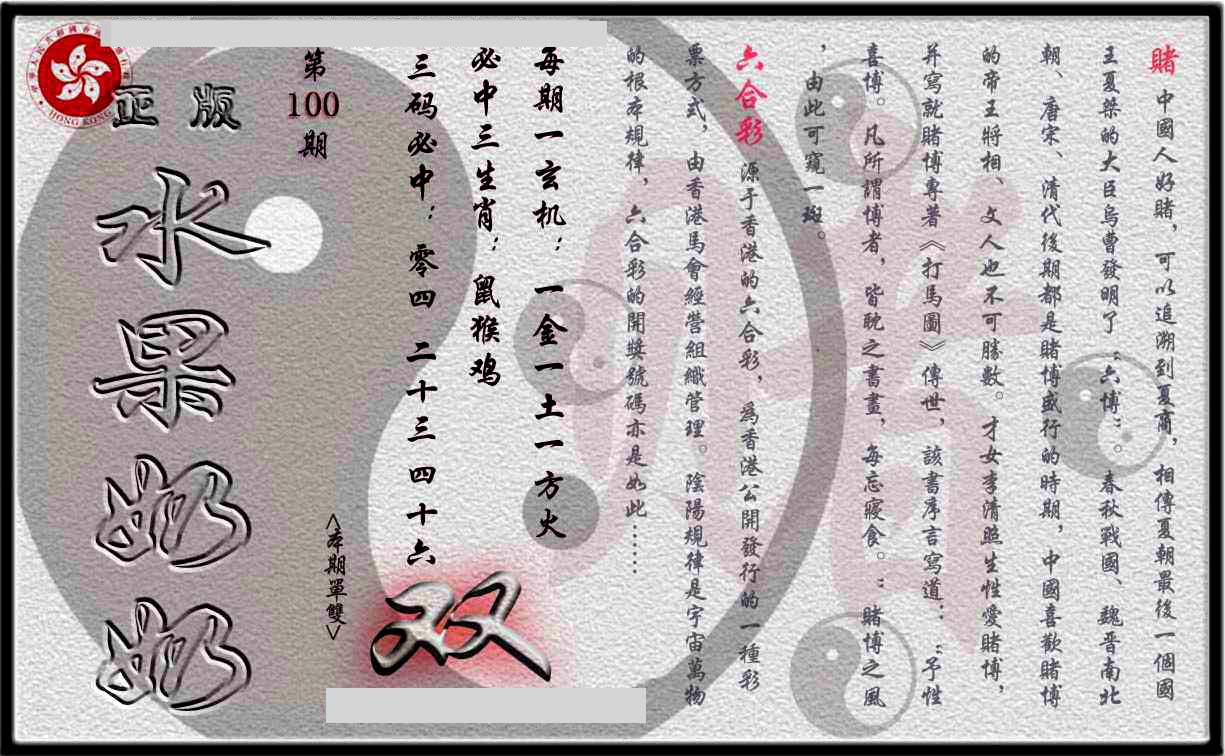 賭 中國人好賭，可以追溯到夏商，相傳夏朝最後一個國
王夏桀的大臣烏曹發明了“六博”。春秋戰國、魏晋南北
朝、唐宋、清代後期都是賭博盛行的時期，中國喜歡賭博
的帝王將相、文人也不可勝數。才女李清照生性愛賭博，
并寫就賭博專著《打馬圖》傳世，該書序言寫道：“予性
喜博。凡所謂博者，皆耽之書畫，每忘寢食。”賭博之風
，由此可窺一斑。
六合彩 源于香港的六合彩，為香港公開發行的一種彩
票方式，由香港馬會經營組織管理。陰陽規律是宇宙萬物
的根本規律，六合彩的開獎號碼亦是如此……
每期一玄机：一金一土一方火
必中三生肖：鼠猴鸡
三码必中：零四 二十三 四十六
双
<本期單雙>
第100期
正版
水果奶奶
HONG KONG